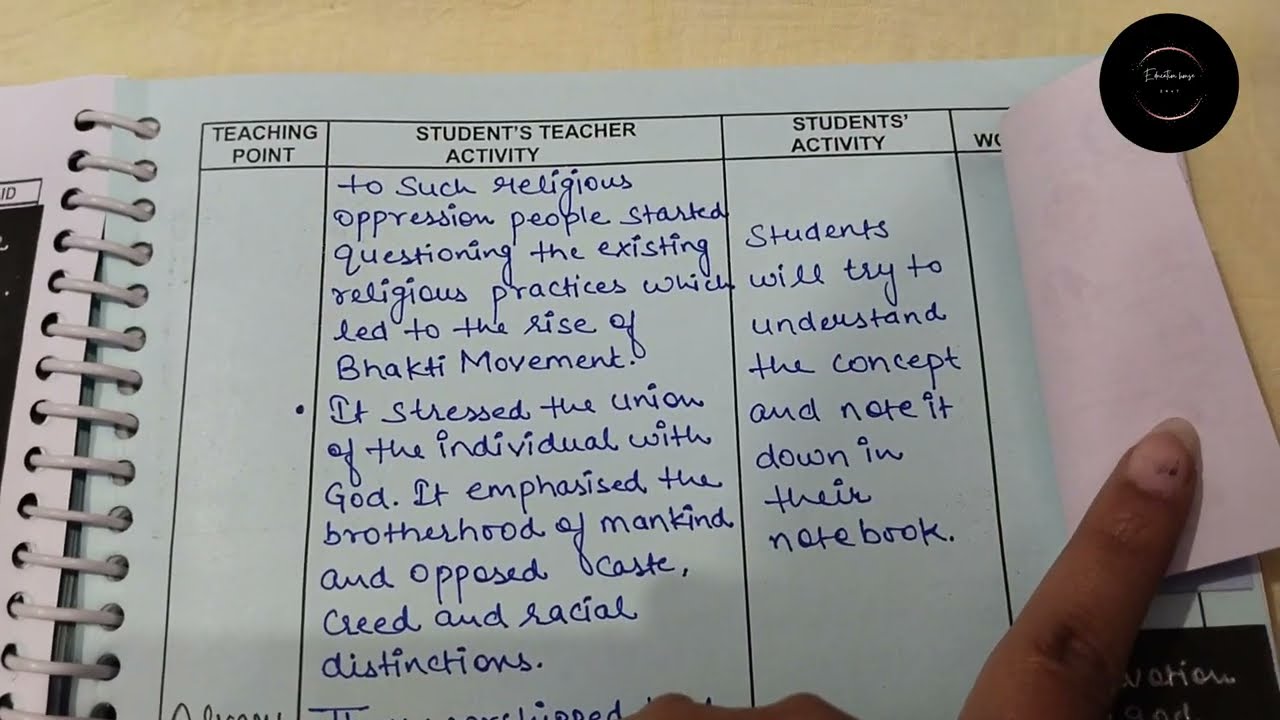 Education house
ID
TEACHING POINT
STUDENT'S TEACHER ACTIVITY
STUDENTS' ACTIVITY
to such religious
oppression people started
questioning the existing
religious practices which
led to the rise of
Bhakti Movement.
• It stressed the union
of the individual with
God. It emphasised the
brotherhood of mankind
and opposed caste,
creed and racial
distinctions.
Students
will try to
understand
the concept
and note it
down in
their
notebook.